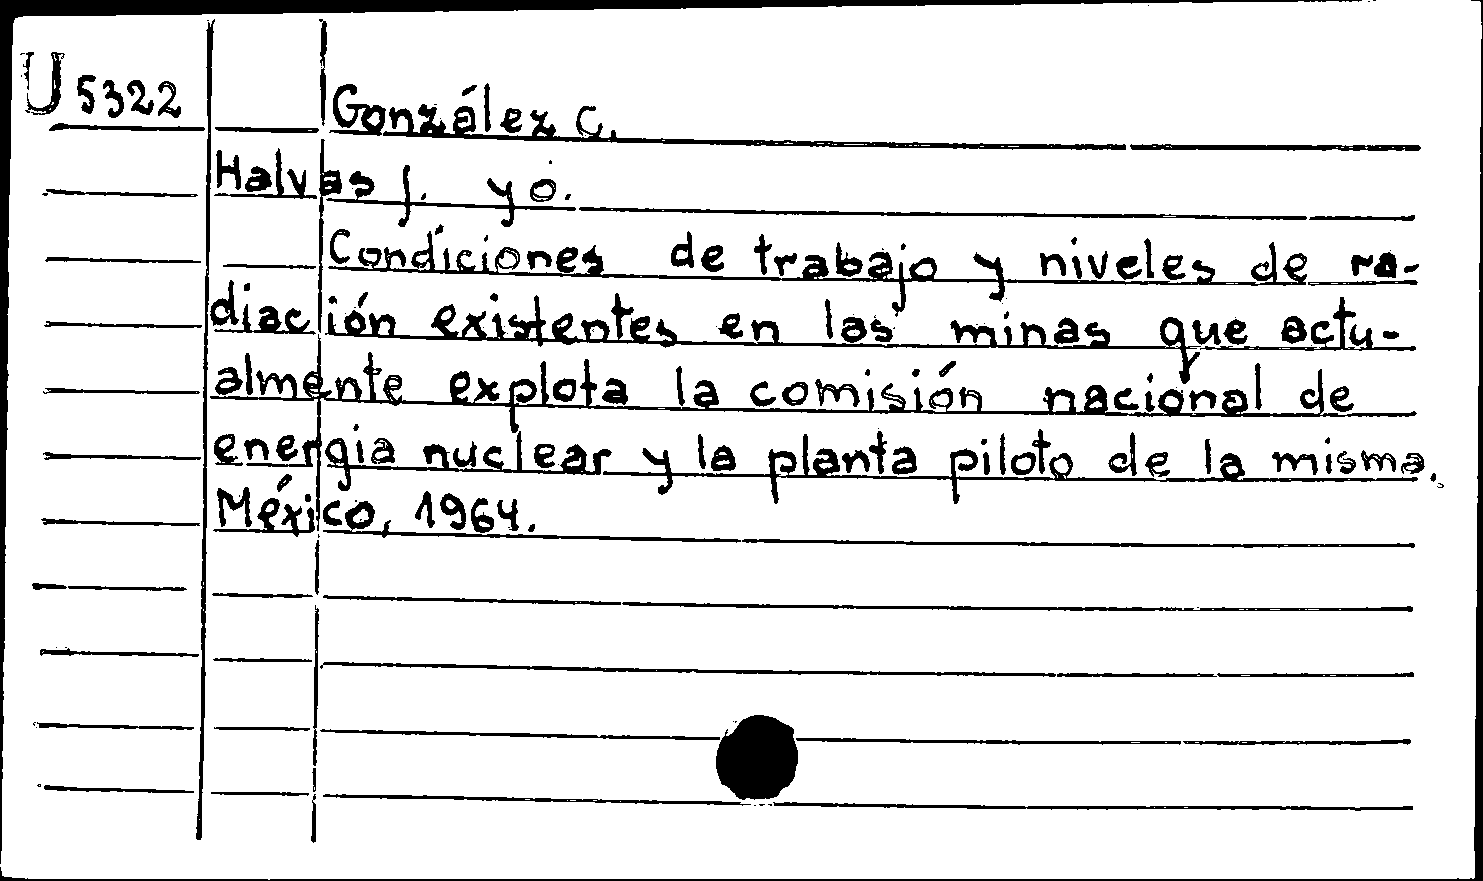 U 5322
González C.
Halvas J. y o.
Condiciones de trabajo y niveles de ra-
diación existentes en las minas que actu-
almente explota la comisión nacional de
energia nuclear y la planta piloto de la misma.
México, 1964.